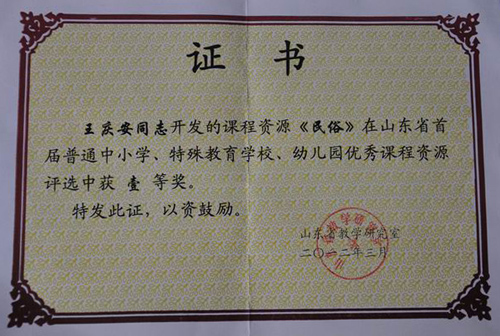 证书
王庆安同志开发的课程资源《民俗》在山东省首
届普通中小学、特殊教育学校、幼儿园优秀课程资源
评选中获 壹 等奖。
特发此证,以资鼓励。
山东省教学研究室
二〇一二年三月